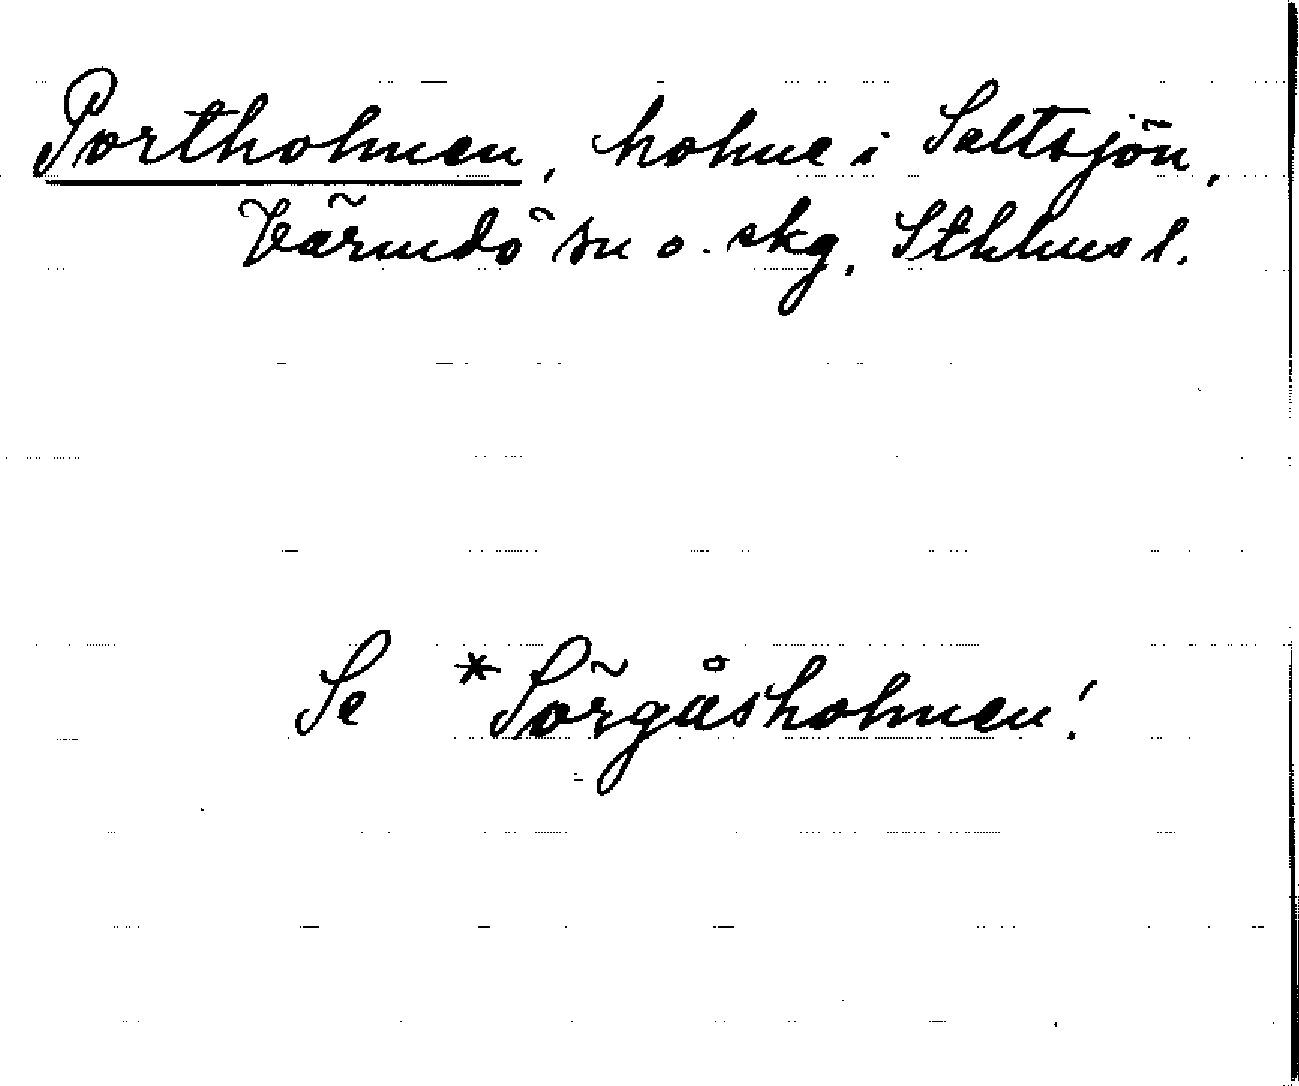 Portholmen, holme i Saltsjön,
Värmdö sn o. skg, Sthlms l.
Se *Sörgåsholmen!